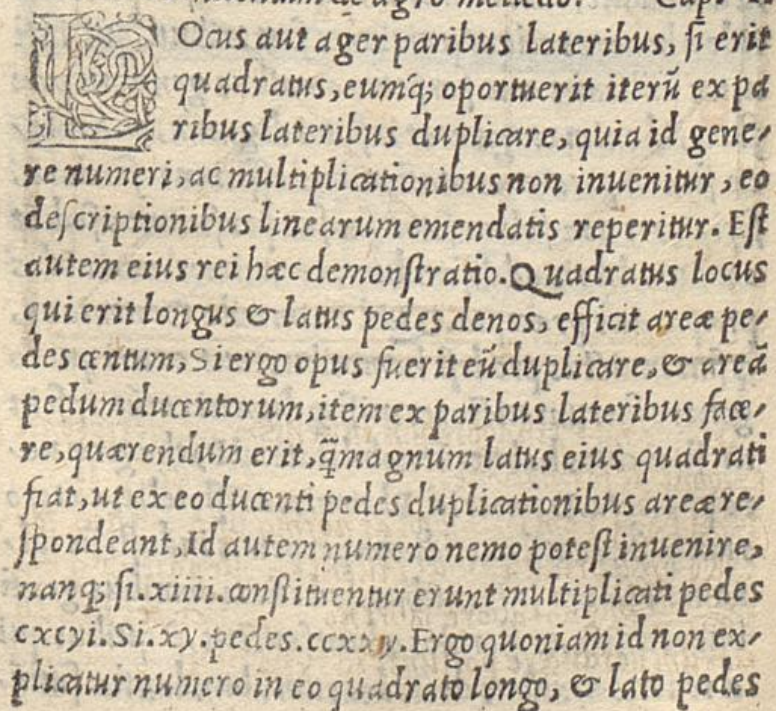 de agro metiendo. Cap.
LOcus aut ager paribus lateribus, si erit
quadratus, eumq; oportuerit iterũ ex pa
ribus lateribus duplicare, quia id gene-
re numeri, ac multiplicationibus non inuenitur, eo
descriptionibus linearum emendatis reperitur. Est
autem eius rei hæc demonstratio. Quadratus locus
qui erit longus & latus pedes denos, efficit areæ pe-
des centum, Si ergo opus fuerit eũ duplicare, & areã
pedum ducentorum, item ex paribus lateribus face-
re, quærendum erit, q̃ magnum latus eius quadrati
fiat, ut ex eo ducenti pedes duplicationibus areæ re-
spondeant, Id autem numero nemo potest inuenire,
nanq; si. xiiii. constituentur erunt multiplicati pedes
cxcyi. Si. xy. pedes. ccxxy. Ergo quoniam id non ex-
plicatur numero in eo quadrato longo, & lato pedes